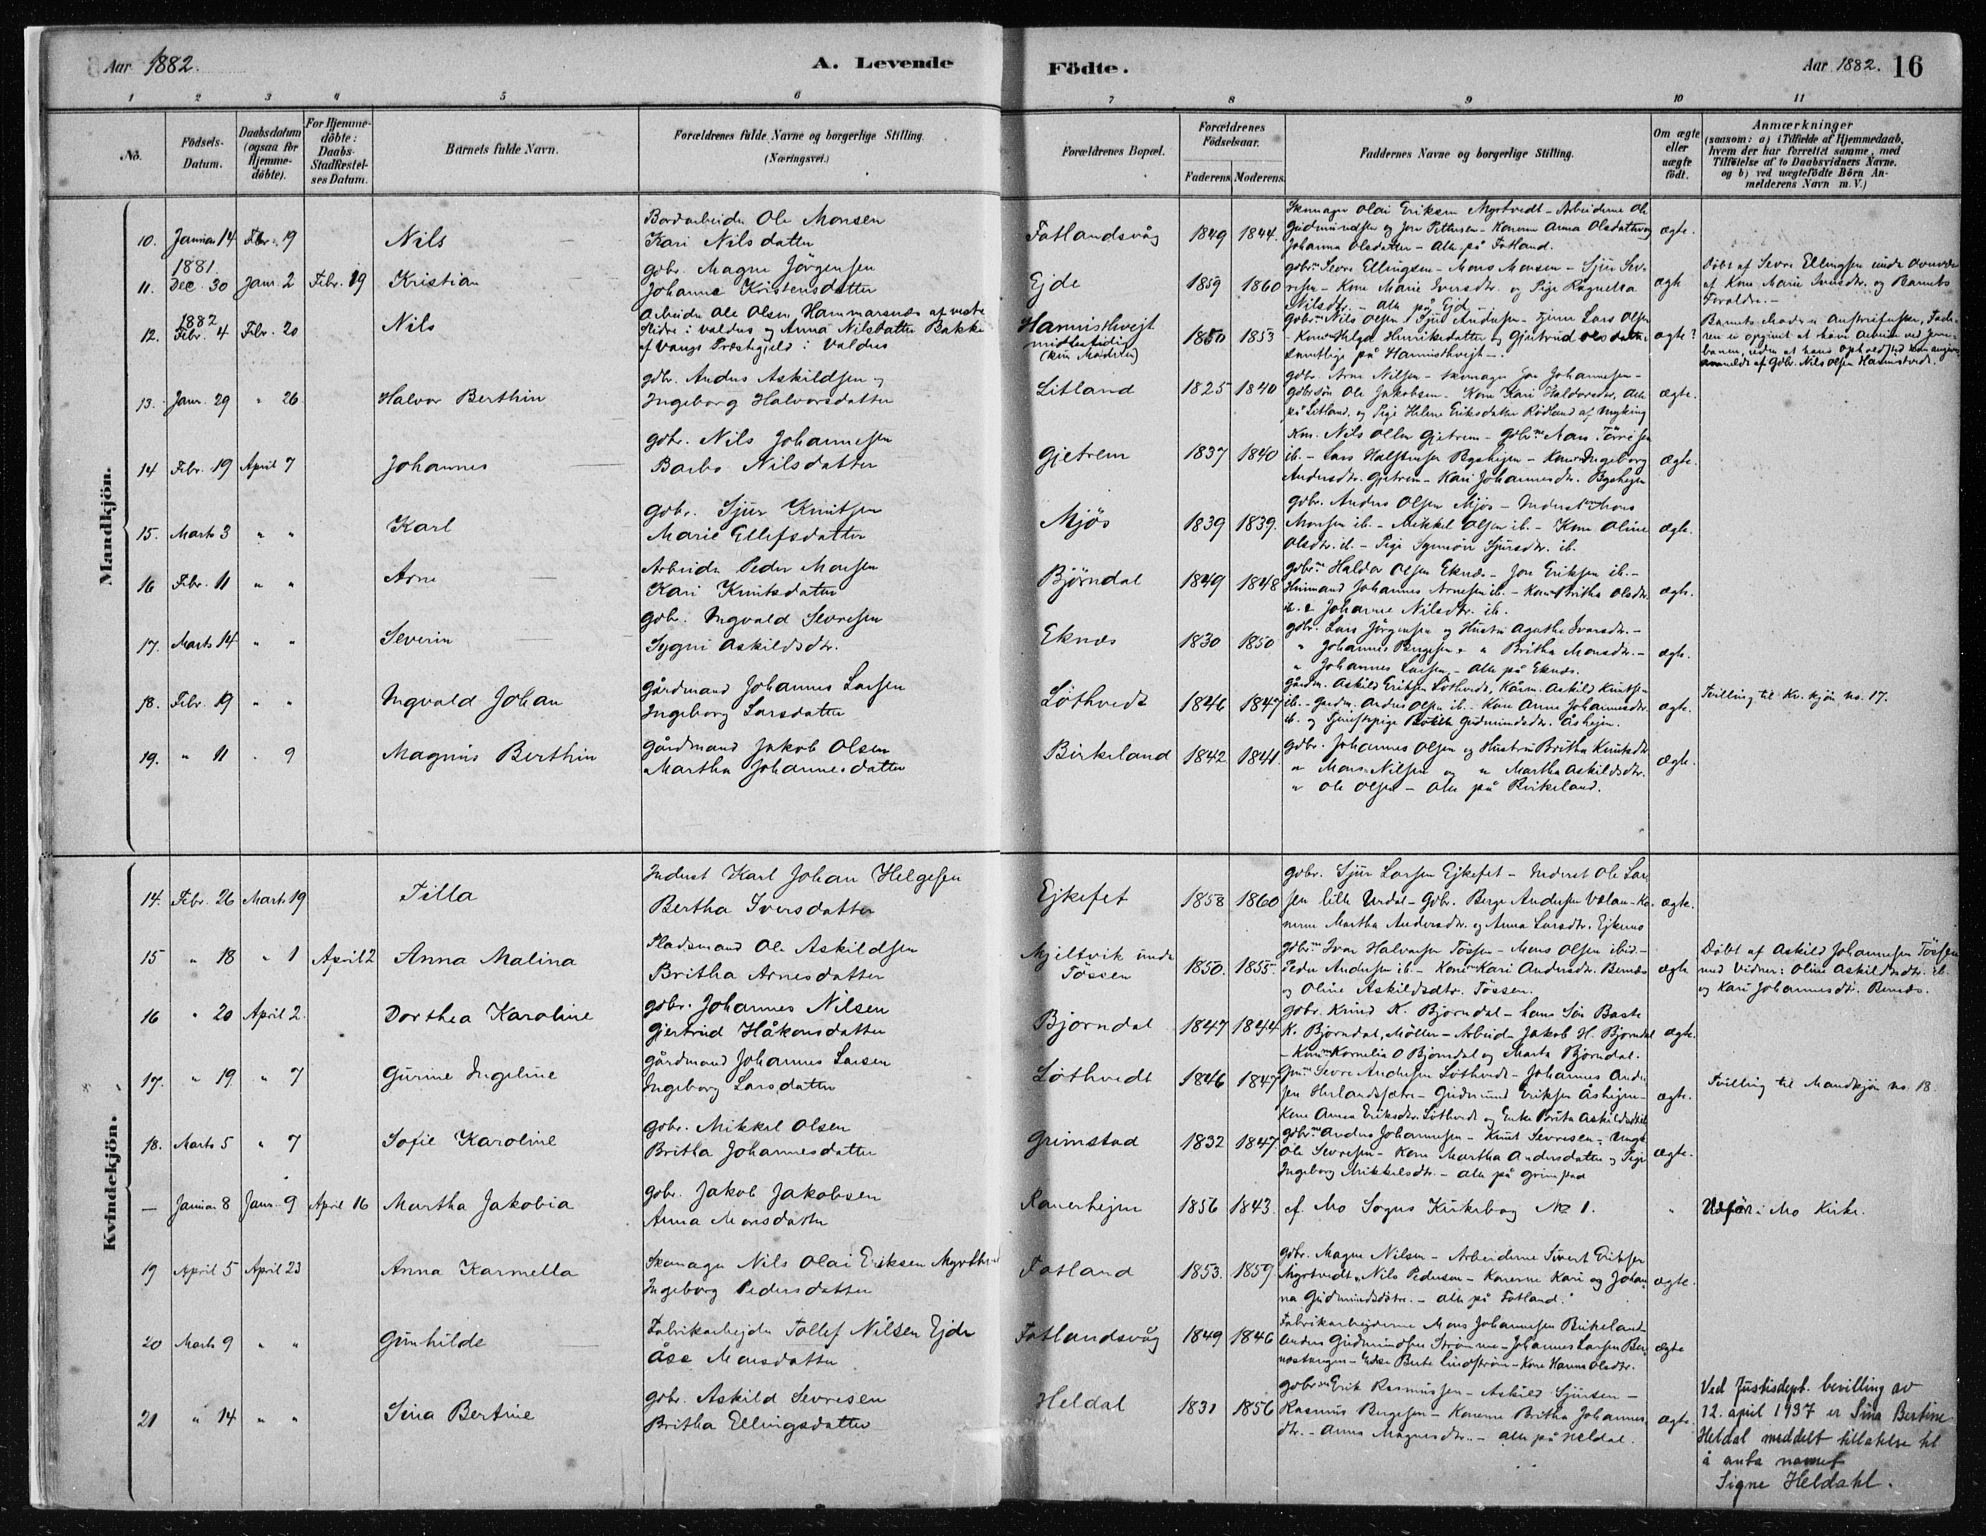 Aar 1882. A. Levende Födte. Aar 1882. 16
1 2 3 4 5 6 7 8 9 10 11
No. Födsels-Datum. Daabsdatum (ogsaa for Hjemme-döbte). For Hjemme-döbte: Daabs-Stadfestel-ses Datum. Barnets fulde Navn. Forældrenes fulde Navne og borgerlige Stilling. (Næringsvei.) Forældrenes Bopæl. Forældrenes Födselsaar. Faderens Moderens Faddernes Navne og borgerlige Stilling. Om ægte eller uægte födt. Anmærkninger (saasom: a) i Tilfælde af Hjemmedaab, hvem der har forrettet samme, med Tilföielse af to Daabsvidners Navne. og b) ved uægtefödte Börn An-melderens Navn m. V.)
Mandkjön.
10. Januar 14 Febr. 19 Nils
Bordarbeider Ole Monsen
Kari Nilsdatter
Fotlandsvåg 1849 1844.
Skomager Olai Eriksen Myrtvedt - Arbeiderne Ole
Gudmundsen og Jon Pettersen - Konerne Anna Olsdatter og
Johanna Olsdatter - Alle på Fotland.
ægte.
11. 1881. Dec. 30 Janr. 2 Febr. 19 Kristian
gbr. Magne Jörgensen
Johanne Kristensdatter
Ejde 1859 1860
gbr. Sevre Ellingsen - Mons Monsen - Sjur Sev-
resen - Kone Marie Iversdtr. og Pige Ragnella
Nilsdtr. - alle på Ejde
ægte
Döbt af Sevre Ellingsen
af Kone Marie Iversdtr. og Barnets
Forældre. -
12. 1882 Febr. 4 Febr. 20 Nils
Arbeider Ole Olsen Hammarsnæs af vestre
Slidre i Valdres og Anna Nilsdatter Bakke
af Vangs Præstegjeld i Valdres
Hannisthvejt
midlertidig
(kun Moderen)
1850 1853
gbr. Nils Olsen, Sjur Andersen - tjener Lars Olsen
- Kone Helga Henriksdatter og Gjertrud Olsdatter
samtlige på Hannisthvejt -.
ægte?
13. Janr. 29 " 26 Halvor Berthin
gbr. Anders Askildsen og
Ingeborg Halvorsdatter
Litland 1825 1840
gbr. Arne Nilsen - skomager Jon Johannesen -
gbrsön Ole Jakobsen. Kone Kari Haldorsdtr. Alle
på Litland og Pige Helene Eriksdatter Rödland af Myking
ægte.
14 Febr. 19 April 7 Johannes
gbr. Nils Johannesen
Barbo Nilsdatter
Gjetrem 1837 1840
Nils Olsen Gjetrem - Gbr. Mons Törresen
ib. - Lars Halstensen Bysheim - Kone Ingeborg
Andersdtr. Gjetrem - Kari Johannesdtr. Bysheim
ægte.
15. Marts 3 " " Karl
Gbr. Sjur Knutsen
Marie Ellefsdatter
Mjös 1839 1839.
gbr. Anders Olsen Mjös - Inderst Mons
Monsen ib. - Mikkel Olsen ib. - Kone Oline
Olsdtr. ib. - Pige Synnöve Sjursdtr. ib.
ægte.
16 Febr. 11 " " Arne
Arbeider Peder Monsen
Kari Knutsdatter
Björndal 1849 1848
gbr. Haldor Olsen Eknæs - Jon Eriksen ib. -
Huusmand Johannes Arnesen ib. - Kone Britha Olsdtr.
ib. & Johanne Nilsdtr. ib.
ægte.
17. Marts 14 " " Severin
Gbr. Ingvald Sevresen
Sygni Askildsdtr.
Eknæs 1830 1850
gbr. Lars Jörgensen og Hustru Agathe Ivarsdtr. -
" Johannes Bergesen & " Britha Monsdtr. -
" Johannes Larsen - alle på Eknæs.
ægte.
18. Febr. 19 " " Ingvald Johan
Gårdmand Johannes Larsen
Ingeborg Larsdatter
Löthvedt 1846 1847
Gårdm. Askild Eriksen Löthvedt, Kårm. Askild Knutsen
ib. - Gårdm. Anders Olsen ib. - Kone Anne Johannesdtr.
ib. og Gudmundsdtr. Åsheim.
ægte.
Tvilling til Kv. kjön no. 17.
19. " 11 " 9 Magnus Berthin
Gårdmand Jakob Olsen
Martha Johannesdatter
Birkeland 1842 1841
gbr. Johannes Olsen og Hustru Britha Knutsdtr
" Mons Nilsen og " Martha Askildsdtr.
" Ole Olsen - Alle på Birkeland.
ægte.
Kvindekjön.
14. Febr. 26 Marts 19 Tilla
Inderst Karl Johan Helgesen
Bertha Iversdatter
Ejkefet 1858 1860
gbr. Sjur Larsen Ejkefet - Inderst Ole Lar-
sen lille Urdal - Gbr. Berge Andersen - Ko-
nerne Martha Andersdtr. og Anna Larsdtr.
ægte.
15 " 18 " 1 April 2 Anna Malina
Pladsmand Ole Askildsen
Britha Arnesdatter
Mjeltvik under
Tössen
1850. 1855.
gbr. Ivar Halvorsen Tössen - Mons Olsen ibid -
Peder Andersen ib. - Kone Kari Andersdtr. Bernæs
og Oline Askildsdtr. Tössen.
ægte
Döbt af Askild Johannesen Tössen
med Vidner: Oline Askildsdtr. ib.
og Kari Johannesdtr. Bernæs.
16 " 20 April 2. Dorthea Karoline
gbr. Johannes Nilsen
Gjertrud Håkonsdatter
Björndal 1847 1844
gbr. Knud K. Björndal - hans Sön Baste
K. Björndal, Möller - Arbeider Jakob H. Björndal
- Kone Kornelia O Björndal og Marta Björndal.
ægte.
17. " 19 " 7 Gurine Ingeline
Gårdmand Johannes Larsen
Ingeborg Larsdatter
Löthvedt 1846 1847
Sevre Andersen Löthvedt - Johannes Ander-
sen Herlandsætre - Gudmund Eriksen Åsheim -
Kone Anna Eriksdtr. Löthvedt og Enke Brita Askildsdtr
ægte.
Tvilling til Mandkjön no. 18.
18. Marts 5 " 7 Sofie Karoline
gbr. Mikkel Olsen
Britha Johannesdatter
Grimstad 1832 1847
gbr. Anders Johannesen - Knut Sevresen - Ungk.
Ole Sevresen - Kone Martha Andersdatter og Pige
Ingeborg Mikkelsdtr. - Alle på Grimstad
ægte.
— Januar 8 Janr. 9 April 16 Martha Jakobia
gbr. Jakob Jakobsen
Anna Monsdatter
1856 1843. cf. Mo Sogns Kirkebog No 1. "
Udfört i Mo Kirke.
19 April 5 April 23 Anna Karmella
Skomager Nils Olai Eriksen Myrthvedt
Ingeborg Pedersdatter
Fotland 1853. 1859
gbr. Magne Nilsen - Arbeiderne Sivert Eriksen
Myrtvedt, Nils Pedersen - Konerne Kari og Johan-
na Gudmundsdtre. - alle på Fotland.
ægte.
20 Marts 9 " " Gunhilde
Fabrikarbejder Tollef Nilsen Ejde
Åse Monsdatter
Fotlandsvåg 1849 1846
Fabrikarbejderne Mons Johannesen Birkeland -
Anders Gudmundsen Strömme - Johannes Larsen Ber-
næstangen - Enke Berte Lindström - Kone Hanna Olsdtr.
ægte
21 " 14 " " Sina Bertine
gbr. Askild Sevresen
Britha Ellingsdatter
Heldal 1831 1856
gbr. Erik Rasmussen - Askild Sjursen -
Rasmus Bergesen - Konerne Britha Johannes-
dtr. - Anna Magnesdtr. - alle på Heldal.
ægte.
Ved Justisdept. bevilling av
12. april 1937 er Sina Bertine
Heldal meddelt tillatelse til
å anta navnet
Signe Heldahl.